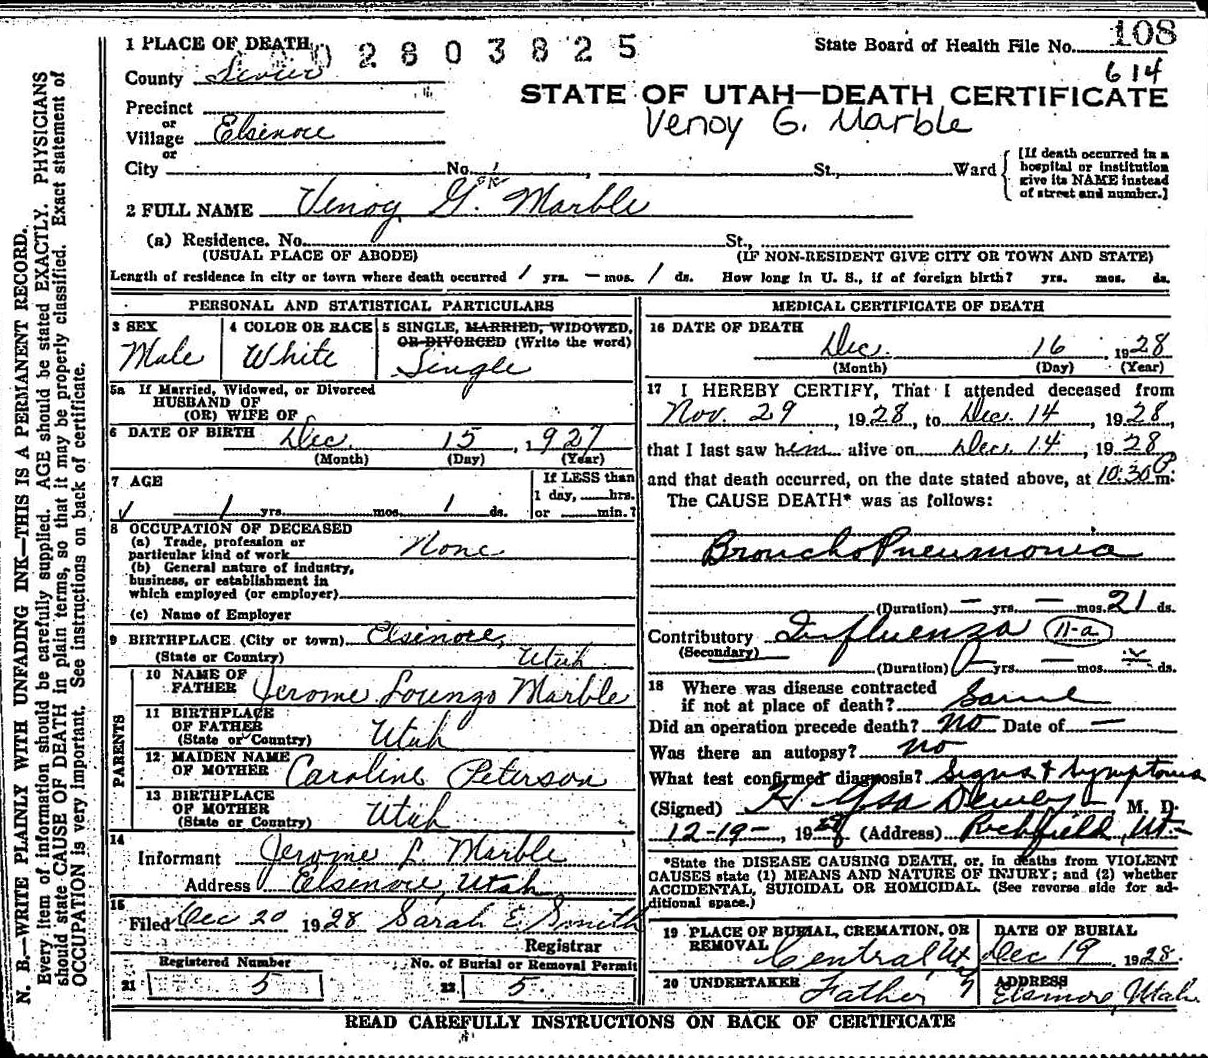 1 PLACE OF DEATH
02803825
State Board of Health File No. 108
614
County Sevier
STATE OF UTAH—DEATH CERTIFICATE
Venoy G. Marble
Precinct
or
Village Elsinore
or
City No. St., Ward
[If death occurred in a
hospital or institution
give its NAME instead
of street and number.]
2 FULL NAME Venoy G. Marble
(a) Residence. No. St.,
(USUAL PLACE OF ABODE) (IF NON-RESIDENT GIVE CITY OR TOWN AND STATE)
Length of residence in city or town where death occurred 1 yrs. — mos. 1 ds. How long in U. S., if of foreign birth? yrs. mos. ds.
PERSONAL AND STATISTICAL PARTICULARS
3 SEX
Male
4 COLOR OR RACE
White
5 SINGLE, MARRIED, WIDOWED,
OR DIVORCED (Write the word)
Single
5a If Married, Widowed, or Divorced
HUSBAND OF
(OR) WIFE OF
6 DATE OF BIRTH Dec. 15, 1927
(Month) (Day) (Year)
7 AGE
1 yrs. mos. 1 ds.
If LESS than
1 day, hrs.
or min.?
8 OCCUPATION OF DECEASED
(a) Trade, profession or
particular kind of work None
(b) General nature of industry,
business, or establishment in
which employed (or employer)
(c) Name of Employer
9 BIRTHPLACE (City or town) Elsinore,
(State or Country) Utah
PARENTS
10 NAME OF
FATHER Jerome Lorenzo Marble
11 BIRTHPLACE
OF FATHER
(State or Country) Utah
12 MAIDEN NAME
OF MOTHER Caroline Peterson
13 BIRTHPLACE
OF MOTHER
(State or Country) Utah
14
Informant Jerome L. Marble
Address Elsinore, Utah
15
Filed Dec 20 1928 Sarah E. Smith
Registrar
Registered Number
21 5
No. of Burial or Removal Permit
22 5
MEDICAL CERTIFICATE OF DEATH
16 DATE OF DEATH
Dec. 16, 1928
(Month) (Day) (Year)
17 I HEREBY CERTIFY, That I attended deceased from
Nov. 29, 1928, to Dec. 14, 1928,
that I last saw him alive on Dec. 14, 1928
and that death occurred, on the date stated above, at 10:30 P m.
The CAUSE DEATH* was as follows:
Broncho Pneumonia
(Duration) — yrs. — mos. 21 ds.
Contributory Influenza 11-a
(Secondary)
(Duration) yrs. — mos. ds.
18 Where was disease contracted
if not at place of death? Same
Did an operation precede death? No Date of —
Was there an autopsy? No
What test confirmed diagnosis? Signs & Symptoms
(Signed) H Asa Dewey M. D.
12-19-, 1928 (Address) Richfield, Ut-
*State the DISEASE CAUSING DEATH, or, in deaths from VIOLENT
CAUSES state (1) MEANS AND NATURE OF INJURY; and (2) whether
ACCIDENTAL, SUICIDAL OR HOMICIDAL. (See reverse side for ad-
ditional space.)
19 PLACE OF BURIAL, CREMATION, OR
REMOVAL Central, Utah
DATE OF BURIAL
Dec 19, 1928.
20 UNDERTAKER Father
ADDRESS
Elsinore, Utah
READ CAREFULLY INSTRUCTIONS ON BACK OF CERTIFICATE
N. B.—WRITE PLAINLY WITH UNFADING INK—THIS IS A PERMANENT RECORD.
Every item of information should be carefully supplied. AGE should be stated EXACTLY. PHYSICIANS
should state CAUSE OF DEATH in plain terms, so that it may be properly classified. Exact statement of
OCCUPATION is very important. See instructions on back of certificate.